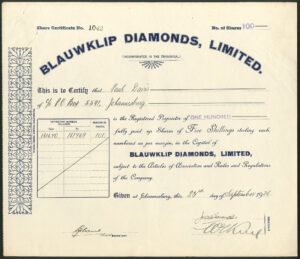 Share Certificate No. 1642
No. of Shares 100
BLAUWKLIP DIAMONDS, LIMITED.
(INCORPORATED IN THE TRANSVAAL.)
This is to Certify that Paul
of c/o P.O. Box 5591, Johannesburg
is the Registered Proprietor of ONE HUNDRED
fully paid up Shares of Five Shillings sterling each,
numbered as per margin, in the Capital of
BLAUWKLIP DIAMONDS, LIMITED,
subject to the Articles of Association and Rules and Regulations
of the Company.
Given at Johannesburg, this 24th day of September 19